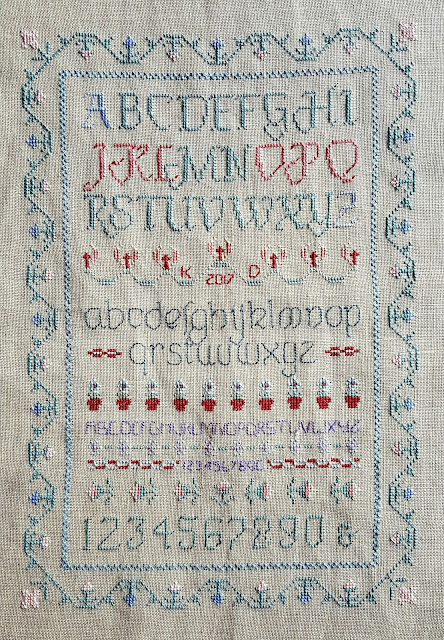 ABCDEFGHI
JKLMNOPQ
RSTUVWXYZ
K 2017 D
abcdefghijklmnop
qrstuvwxyz
ABCDEFGHIJKLMNOPQRSTUVWXYZ
1234567890
1234567890 &